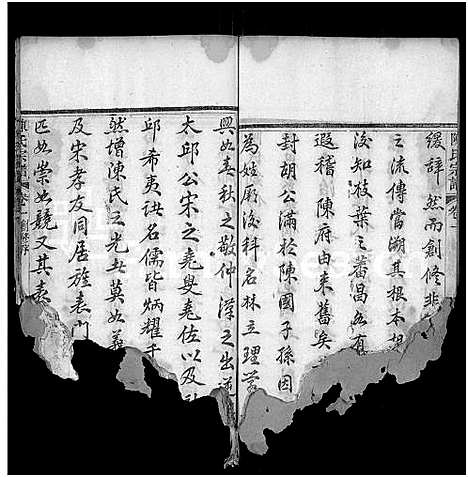 陳氏宗譜 卷一
緩辭然而創修非
之流傳當溯其根本枝
沒知枝葉之蕃昌必有
遐稽陳府由來舊矣
封胡公滿於陳國子孫因
為姓厥後科名林立理學
與如春秋之敬仲漢之出
太邱公宋之堯叟堯佐以及
邱希夷諸名儒皆炳耀千
然增陳氏之光此莫如義
及宋孝友同居旌表門
匹如崇如競又其表
陳氏宗譜 卷一